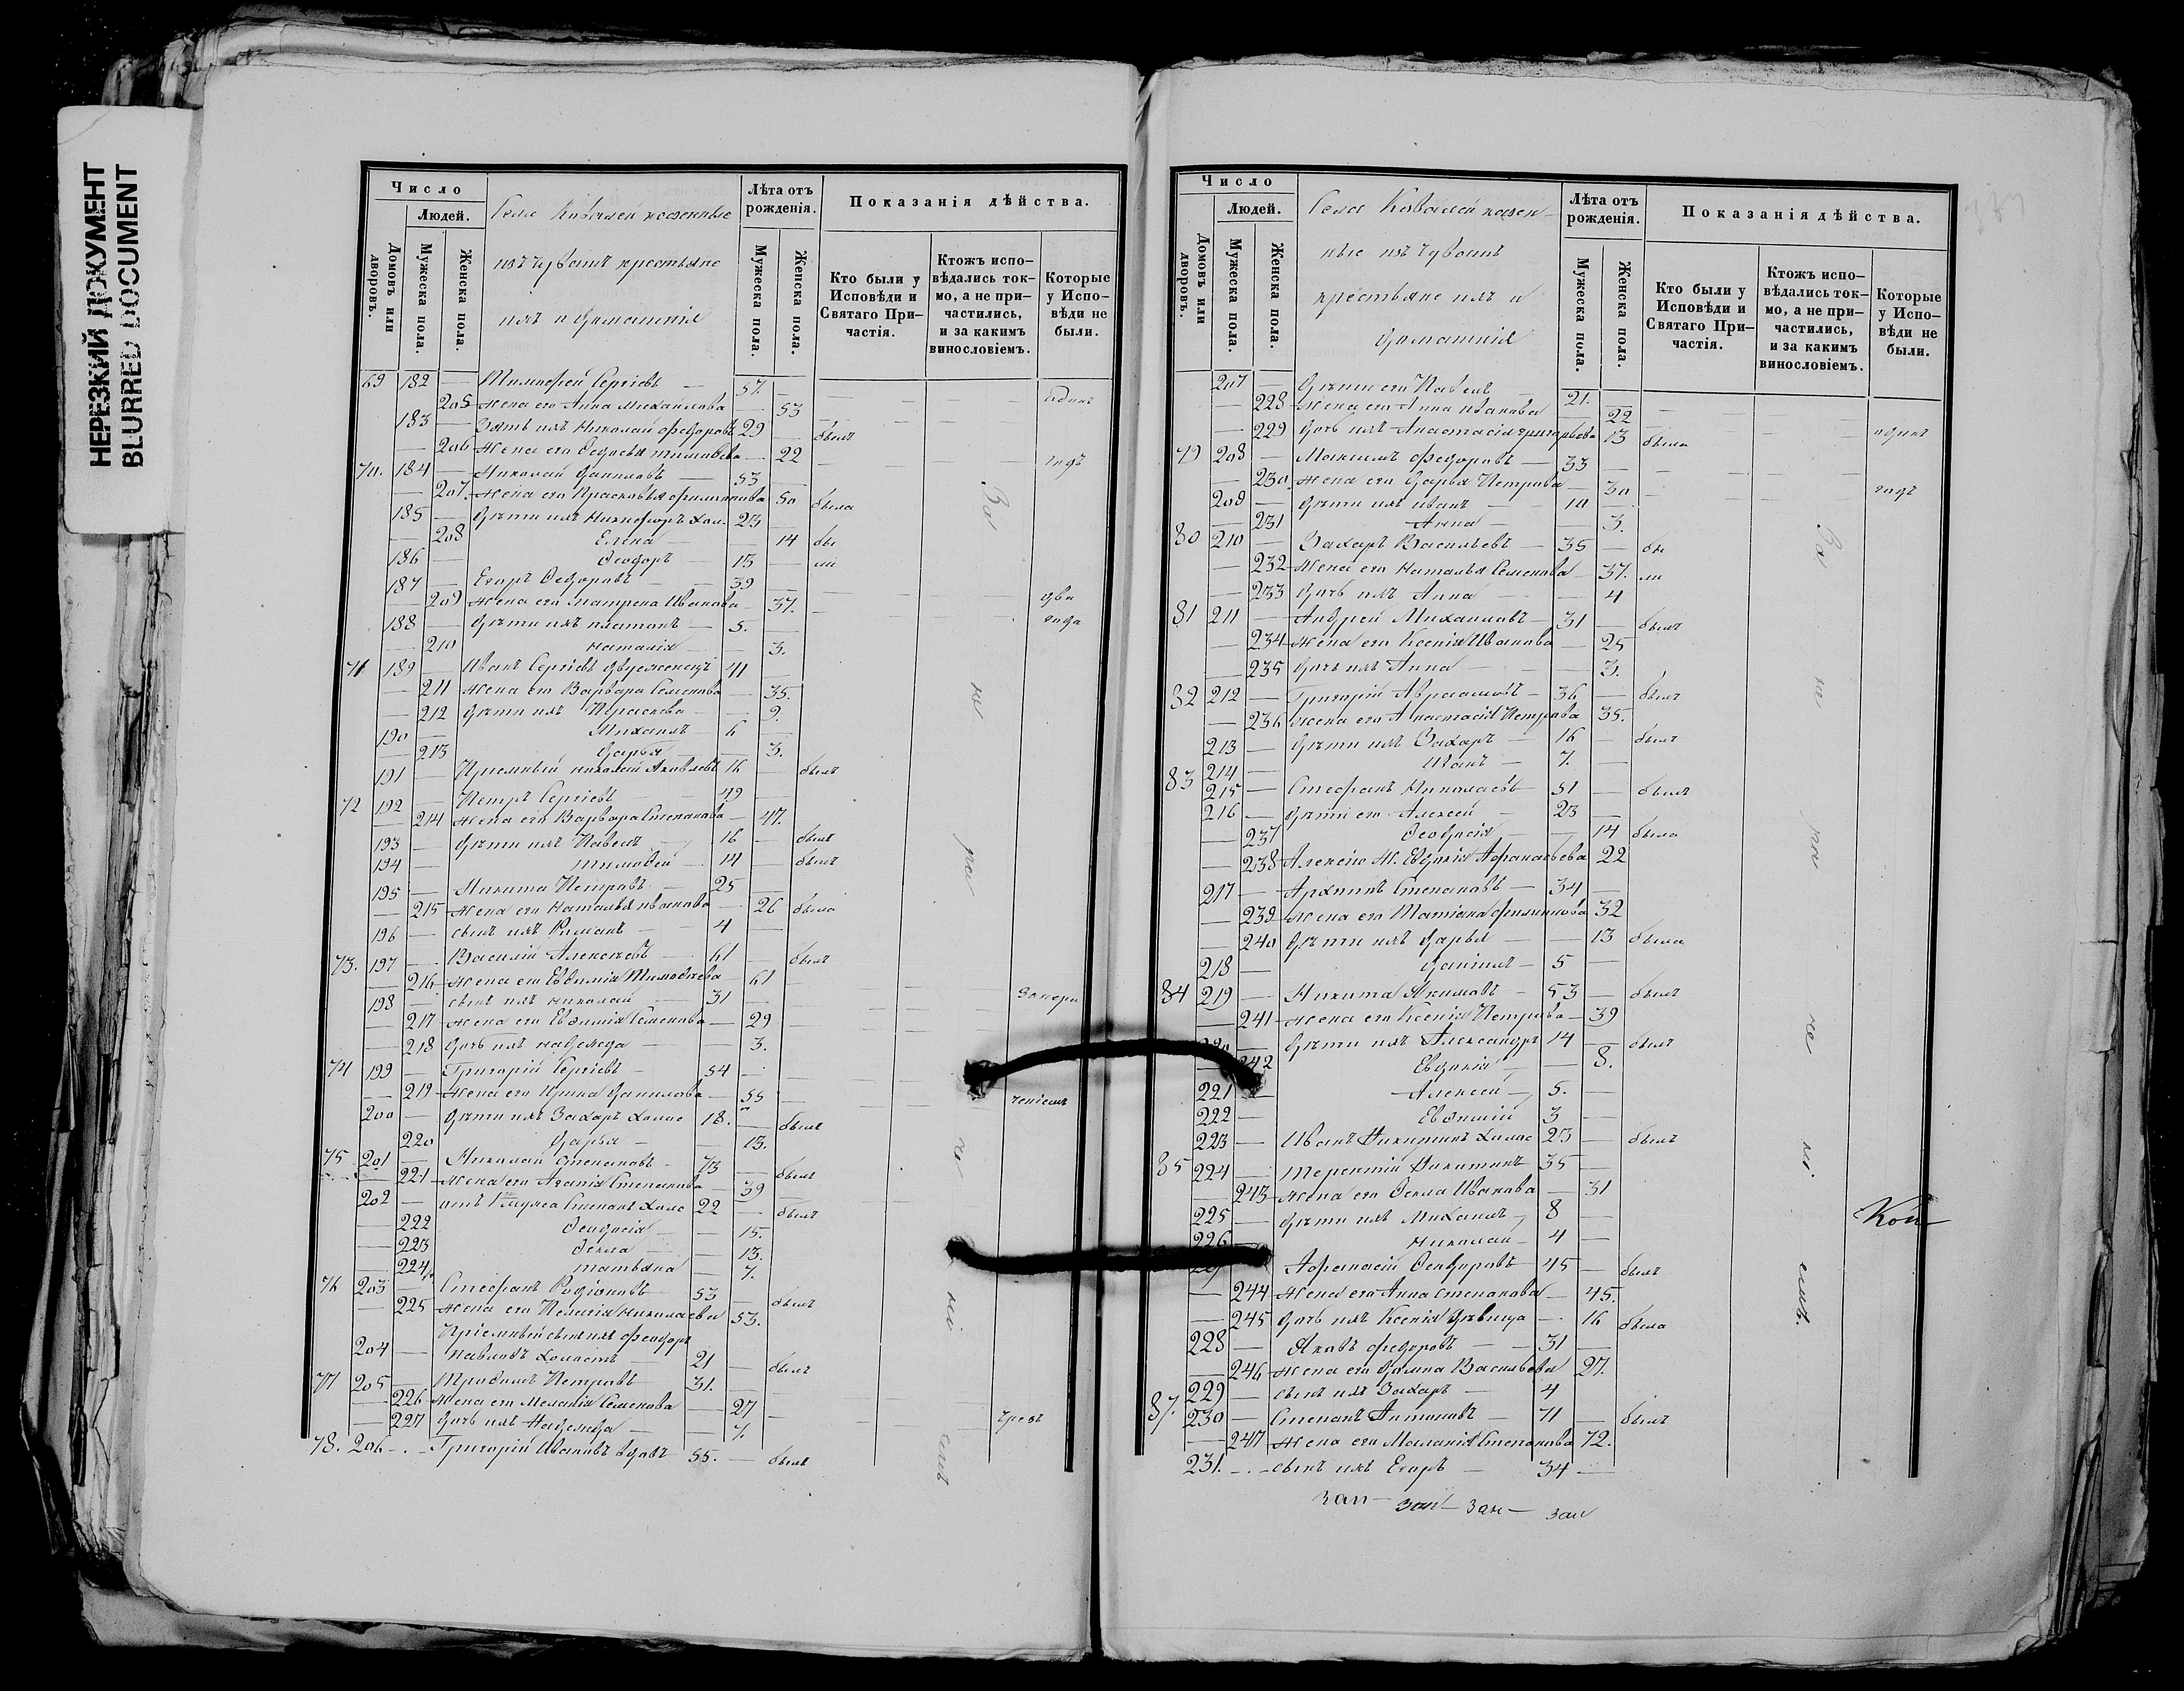 НЕРЕЗКИЙ ДОКУМЕНТ
BLURRED DOCUMENT
Число
Людей.
Домовъ или дворовъ.
Мужеска пола.
Женска пола.
Села Ковалей казенные
изъ чувашъ крестьяне
ихъ и домашнія
Лѣта отъ рожденія.
Мужеска пола.
Женска пола.
Показанія дѣйства.
Кто были у Исповѣди и Святаго Причастія.
Ктожъ исповѣдались токмо, а не причастились, и за какимъ винословіемъ.
Которые у Исповѣди не были.
69 182 — Тимофей Сергіевъ — 57. —
— 205 Жена его Анна Михайлова — 53
183 — Зять ихъ Николай Федоровъ 29 — былъ
— 206 Жена его Федосья Тимофеева — 22
70. 184 — Николай Даниловъ — 53 — годъ
— 207 Жена его Прасковья Филиппова 50 была
185 — Дѣти ихъ Никифоръ хол. 23
— 208 Елена — 14 бы
186 — Ѳеодоръ — 15 — ли
187 — Егоръ Ѳедоровъ — 39
— 209 Жена его Матрена Иванова — 37. два
188 — Дѣти ихъ Платонъ — 5. — года
— 210 Наталія — 3.
71 189 — Иванъ Сергіевъ двуженецъ 41 —
— 211 Жена его Варвара Семенова — 35.
— 212 Дѣти ихъ Прасковья — 9.
190 — Михаилъ — 6 —
— 213 Дарья — 3.
191 — Пріемный Николай Яковлевъ 16 — былъ
72 192 — Петръ Сергіевъ — 49 —
— 214 Жена его Варвара Степанова — 47.
193 — Дѣти ихъ Павелъ — 16 — былъ
194 — Тимоѳей — 14 — былъ
195 — Никита Петровъ — 25 —
— 215 Жена его Наталья Иванова — 26 была
196 — сынъ ихъ Романъ — 4 —
73. 197 — Василій Алексѣевъ — 61 — былъ
— 216 Жена его Евфимія Тимоѳеева — 61
198 — сынъ ихъ Николай — 31 —
— 217 Жена его Евфимія Семенова — 29
— 218 Дочь ихъ Надежда — 3.
74 199 — Григорій Сергіевъ — 54 —
— 219 Жена его Ирина Данилова — 55
200 — Дѣти ихъ Захаръ холос 18. — былъ
220 Дарья — 13.
75 201 — Николай Степановъ — 73 — былъ
— 221 Жена его Агафія Степанова — 39
202 — отъ 1го мужа Степанъ холос 22 — былъ
— 222 Ѳеодосія — 15.
— 223 Ѳекла — 13.
— 224 Татьяна — 7.
76 203 — Стефанъ Родіоновъ — 53 — былъ
— 225 Жена его Пелагія Николаева 53.
Пріемный сынъ ихъ Феодоръ
204 — Павловъ холостъ — 21 — былъ
77 205 — Трофимъ Петровъ — 31. —
— 226 Жена его Меланія Семенова — 27
— 227 Дочь ихъ Надежда — 7.
78. 206 — Григорій Ивановъ вдовъ — 55. — былъ
Число
Людей.
Домовъ или дворовъ.
Мужеска пола.
Женска пола.
Села Ковалей казен-
ные изъ чувашъ
крестьяне ихъ и
домашнія
Лѣта отъ рожденія.
Мужеска пола.
Женска пола.
Показанія дѣйства.
Кто были у Исповѣди и Святаго Причастія.
Ктожъ исповѣдались токмо, а не причастились, и за какимъ винословіемъ.
Которые у Исповѣди не были.
207 — Дѣти его Павелъ — 21. —
— 228 Жена его Анна Иванова — 22
— 229 Дочь ихъ Анастасія Григорьева 13 была один
79 208 — Максимъ Федоровъ — 33 —
— 230 Жена его Дарья Петрова — 30 годъ
209 — Дѣти ихъ Иванъ — 10 —
— 231 Анна — 3.
80 210 — Захаръ Васильевъ — 35 — бы
— 232 Жена его Наталья Семенова 37. ли
— 233 Дочь ихъ Анна — 4
81 211 — Андрей Михайловъ — 31 — былъ
— 234 Жена его Ксенія Иванова — 25
— 235 Дочь ихъ Анна — 3.
82 212 — Григорій Авраамовъ — 36 — былъ
— 236 Жена его Анастасія Петрова 35.
213 — Дѣти ихъ Захаръ — 16 — былъ
214 — Иванъ — 7. —
83 215 — Стефанъ Николаевъ — 51 — былъ
216 — Дѣти его Алексей — 23 —
— 237 Ѳеодосія — 14 была
— 238 Алексѣя ж. Евдокія Афанасьева 22
217 — Архипъ Степановъ — 34 —
— 239 Жена его Татіана Филиппова 32
— 240 Дѣти ихъ Дарья — 13 была
218 — Даніилъ — 5 —
84 219 — Никита Якимовъ — 53 — былъ
— 241 Жена его Ксенія Петрова — 39
220 — Дѣти ихъ Александръ 14 — былъ
242 Евдокія — 8.
221 — Алексей — 5. —
222 — Евфимій 3 —
223 — Иванъ Никитинъ холос 23 — былъ
85 224 — Терентій Никитинъ 35 —
— 243 Жена его Ѳекла Иванова — 31
225 — Дѣти ихъ Михаилъ — 8 —
226 Николай — 4 —
Афанасій Ѳеодоровъ 45 — былъ
— 244 Жена его Анна Степанова — 45.
— 245 Дочь ихъ Ксенія дѣвица — 16 была
228 — Яковъ Федоровъ — 31 —
— 246 Жена его Домна Васильева 27.
229 — сынъ ихъ Захаръ — 4
87. 230 — Степанъ Антоновъ — 71 — былъ
— 247 Жена его Маланія Степанова 72.
231. — сынъ ихъ Егоръ — 34 —
Кой